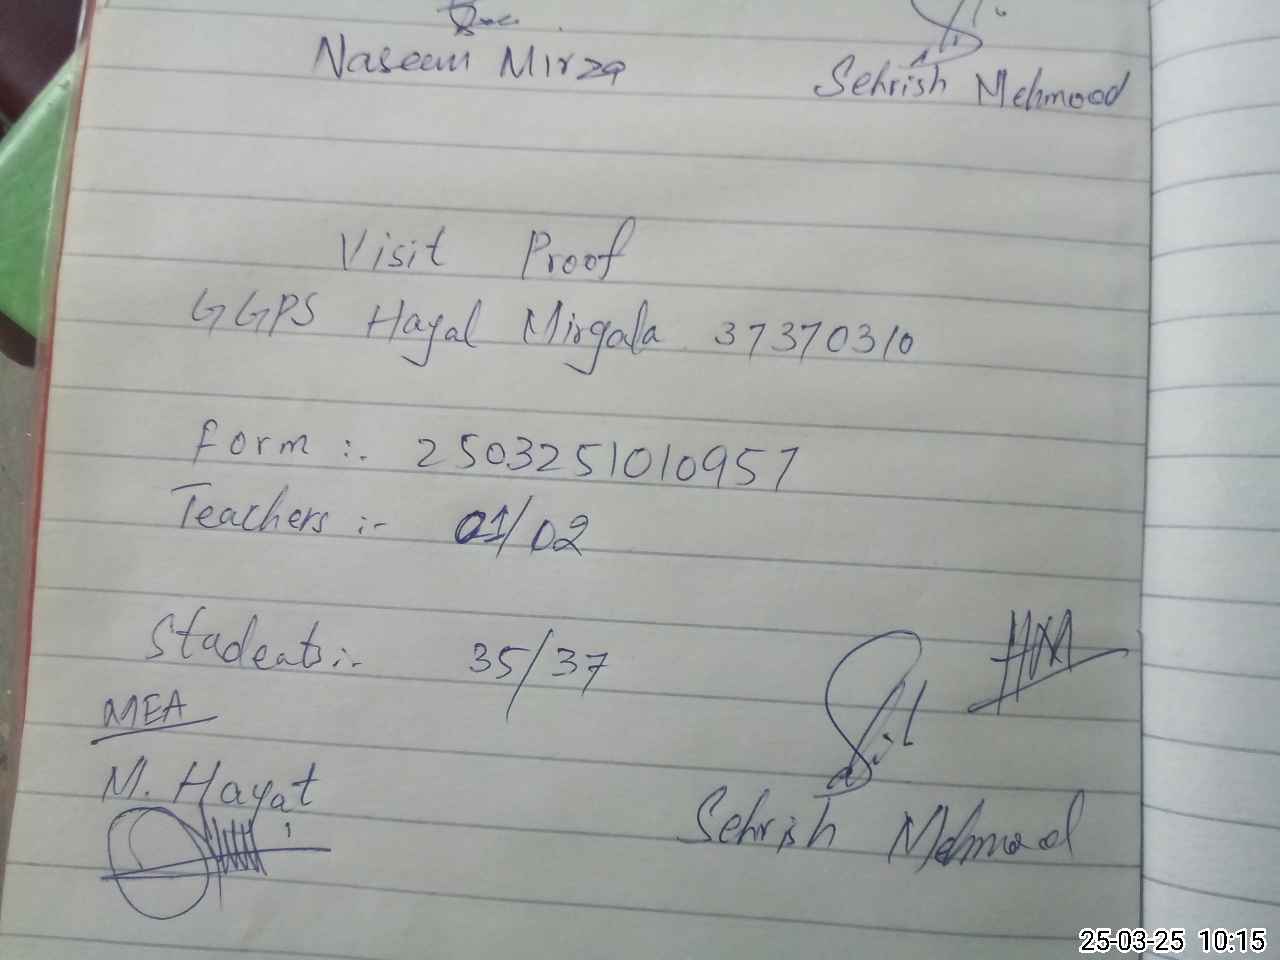 Naseem Mirza
Sehrish Mehmood
Visit Proof
GGPS Hayal Mirgala 37370310
Form :- 2503251010957
Teachers :- 01/02
Students :- 35/37
MEA
M. Hayat
HM
Sehrish Mehmood
25-03-25 10:15